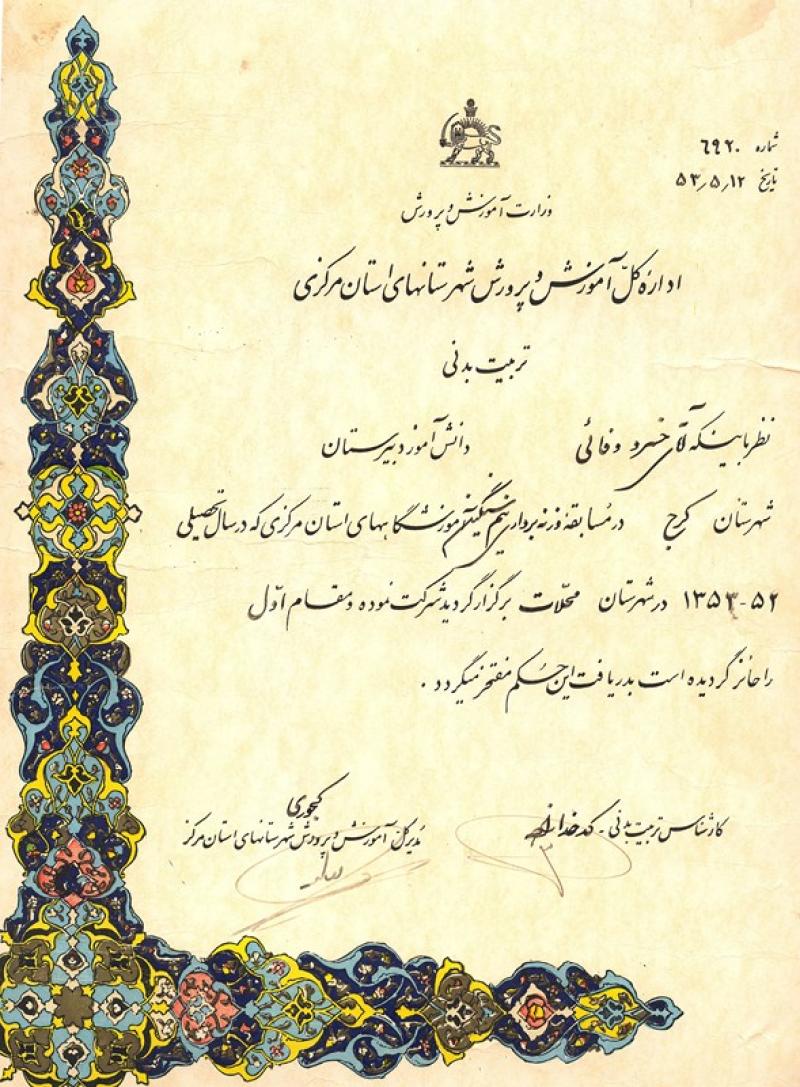 شماره ۶۹۲۰
تاریخ ۵۳٫۵٫۱۲
وزارت آموزش و پرورش
اداره کلّ آموزش و پرورش شهرستانهای استان مرکزی
تربیت بدنی
نظر باینکه آقای خسرو وفائی دانش آموز دبیرستان
شهرستان کرج در مسابقه وزنه برداری نیم سنگین آموزشگاههای استان مرکزی که در سال تحصیلی
۵۲-۱۳۵۳ در شهرستان محلّات برگزار گردید شرکت نموده و مقام اوّل
را حائز گردیده است بدریافت این حکم مفتخر میگردد .
کارشناس تربیت بدنی - کدخدا
گجوری
مدیر کلّ آموزش و پرورش شهرستانهای استان مرکز